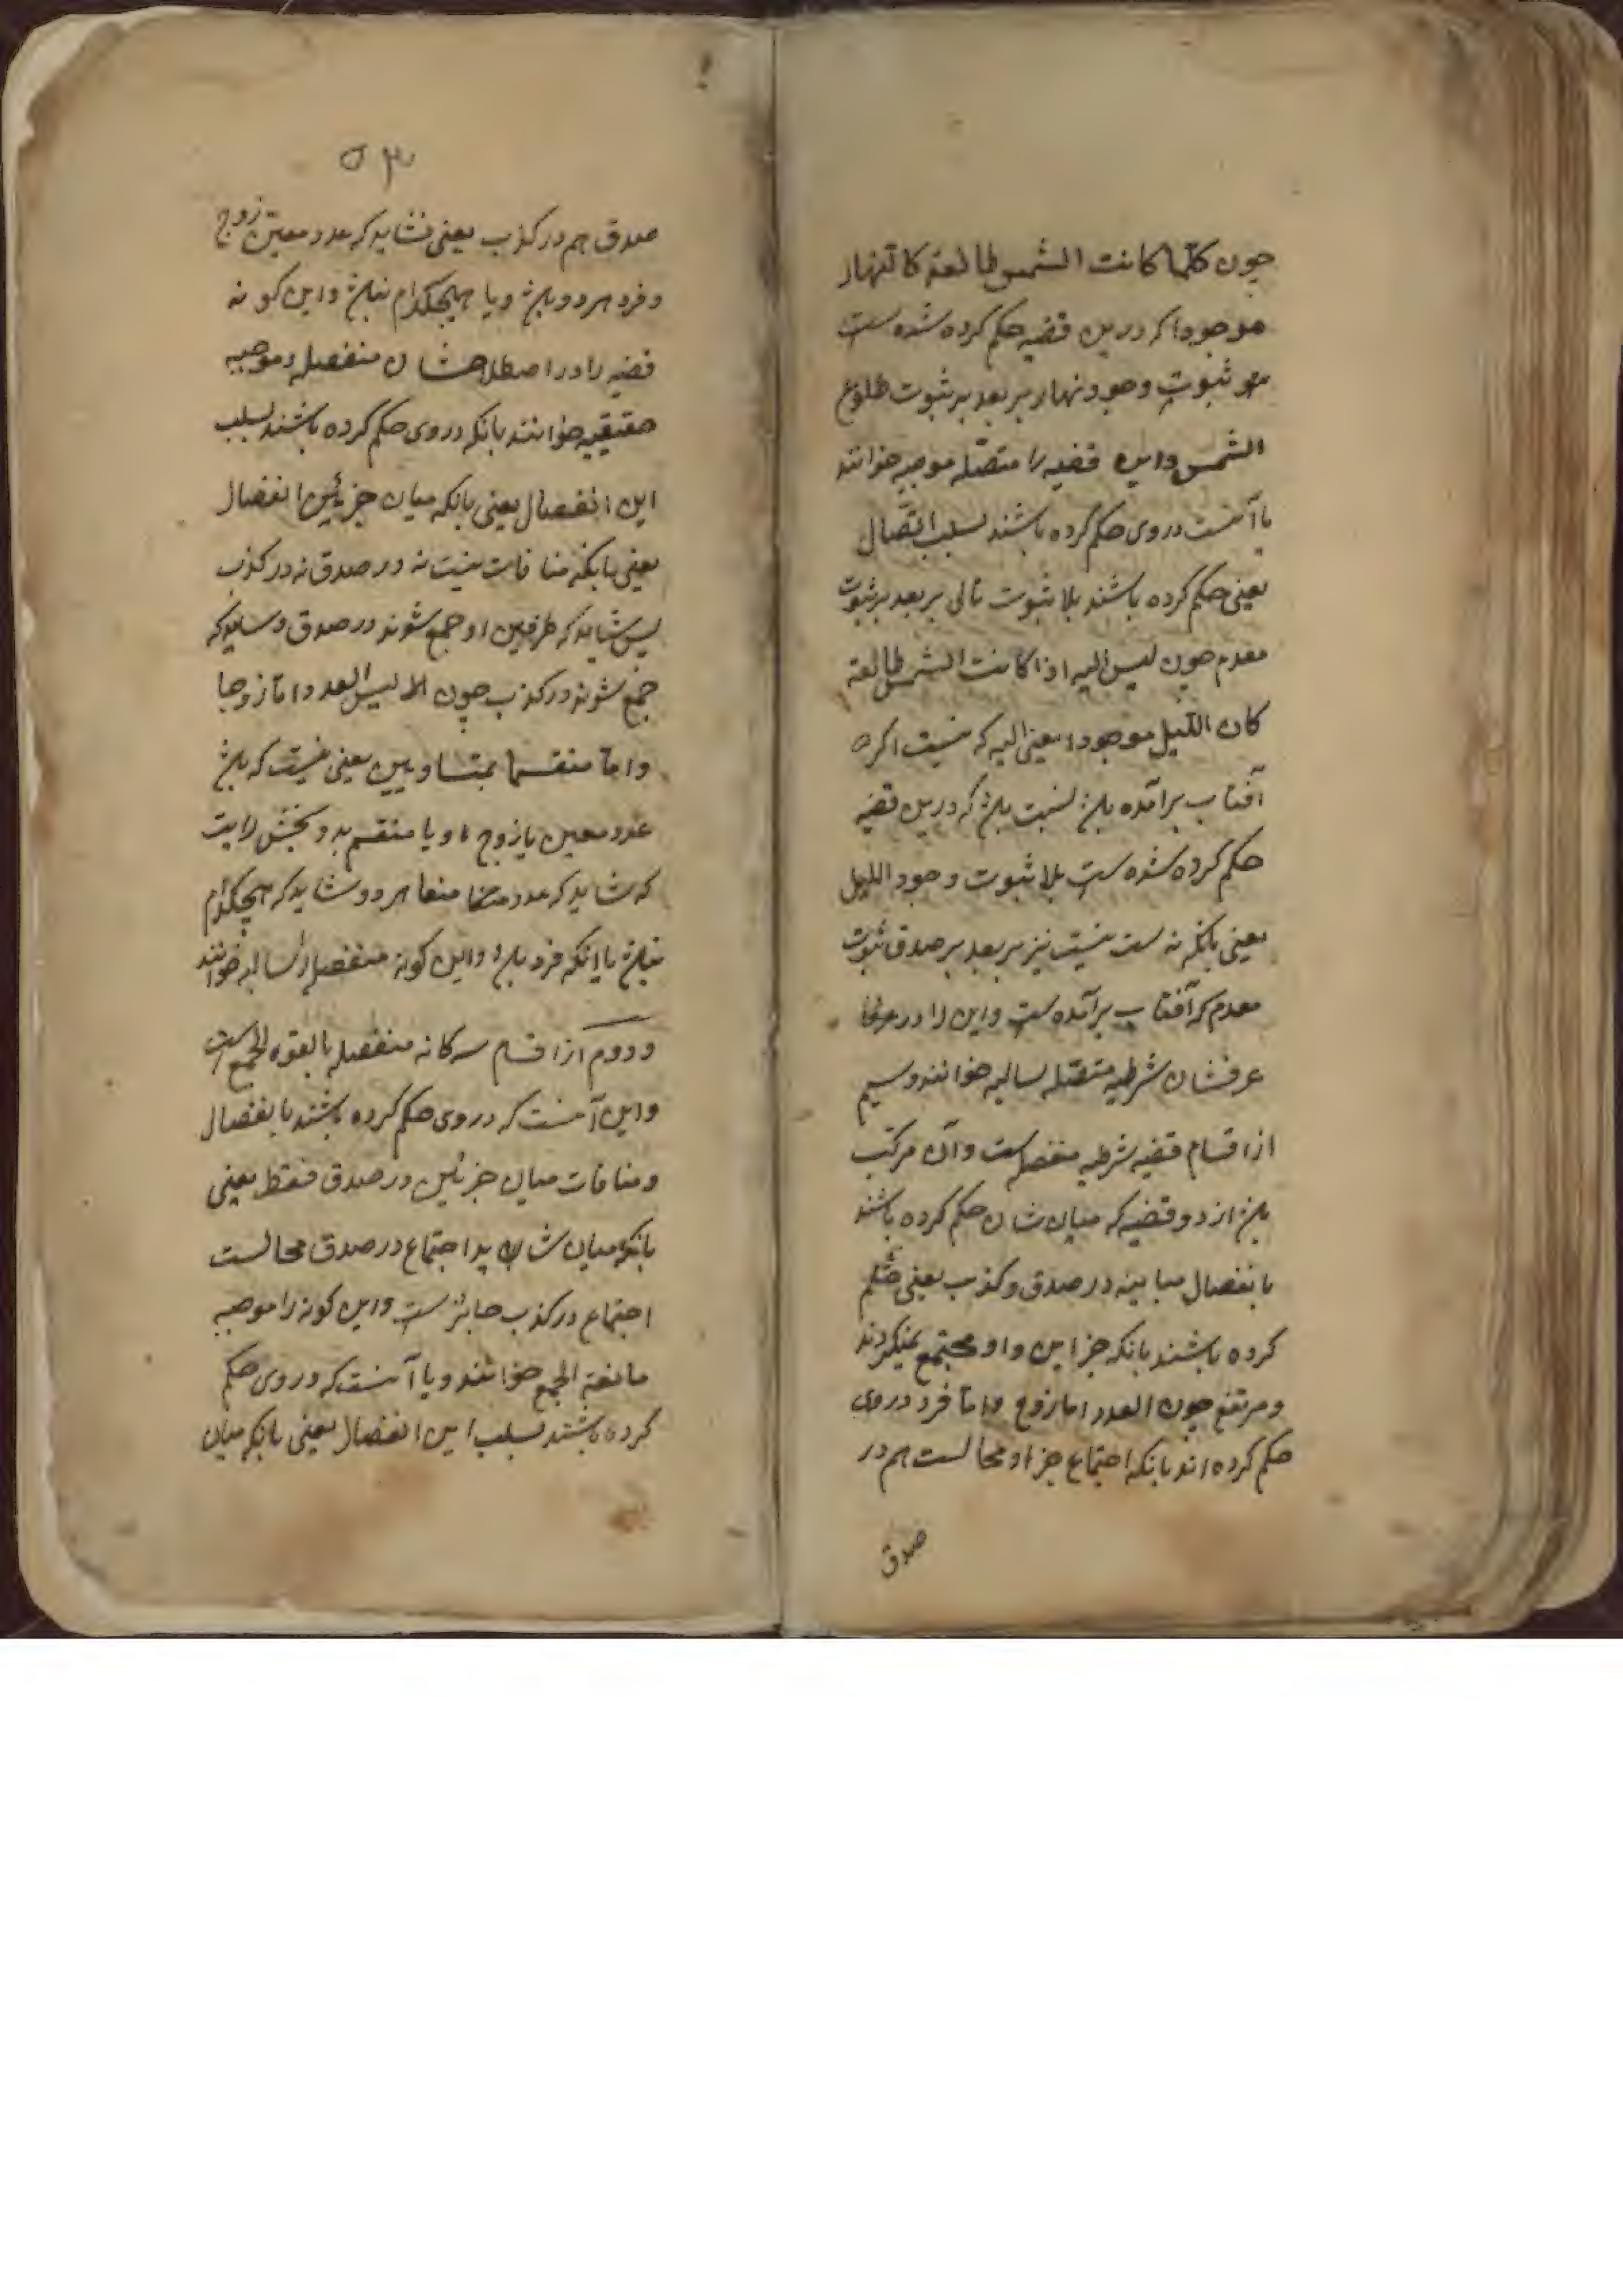 چون کلما کانت الشمس طالعة کا لنهار
موجودا که درین قضیه حکم کرده شده است
ثبوت وجود نهار بر بعد بر ثبوت طلوع
الشمس و این قضیه را متصله موجبه خوانند
یا آنست در وی حکم کرده باشند بسلب اتّصال
یعنی حکم کرده باشند بلا ثبوت تالی بر بعد بر ثبوت
مقدم چون لیس البته اذا کانت الشمس طالعة
کان اللّیل موجودا یعنی البته که نیست اگر
آفتاب برآمده باشد که درین قضیه
حکم کرده شده است بلا ثبوت وجود اللیل
یعنی بانکه نیست نیز بر بعد بر صدق ثبوت
مقدم که آفتاب برآمده است و این را در
عرفشان شرطیه متّصله سالبه خوانند و سیم
از اقسام قضیه شرطیه منفصله است و آن مرکّب
باشد از دو قضیه که میان شان حکم کرده باشند
بانفصال میانه در صدق و کذب یعنی حکم
کرده باشند بانکه جزا این و او مجتمع نمیکردند
و مرتفع چون العدد اما زوج و امّا فرد در وی
حکم کرده اند بانکه اجتماع جزاو محالست هم در
صدق
صدق هم در کذب یعنی نشاید که عدد معین زوج
و فرد هر دو باشد و یا هیچکدام نباشد و این کونه
قضیه را در اصطلاحشان منفصله و موجبه
حقیقیه خوانند بانکه در وی حکم کرده باشند بسلب
این انفصال یعنی بانکه میان جزئین انفصال
یعنی بانکه منافات نیست نه در صدق نه در کذب
پس شاید که طرفین او جمع شوند در صدق و شاید که
جمع شوند در کذب چون الا لیس العدد امّا زوجا
و امّا منقسما بمتساویین یعنی نیست که باشد
عدد معین یا زوج و یا منقسم بدو بخش راست
که شاید که عدد هر دو شاید که هیچکدام
نباشد با اینکه فرد باشد و این کونه منفصله را سالبه خوانند
و دوم از اقسام سه کانه منفصله الجمع است
و این آنست که در وی حکم کرده باشند بانفصال
و منافات میان جزئین در صدق فقط یعنی
بانکه میان شان اجتماع در صدق محالست
اجتماع در کذب جائز است و این کونه را موجبه
مانعة الجمع خوانند و یا آنست که در وی حکم
کرده باشند بسلب این انفصال یعنی بانکه میان